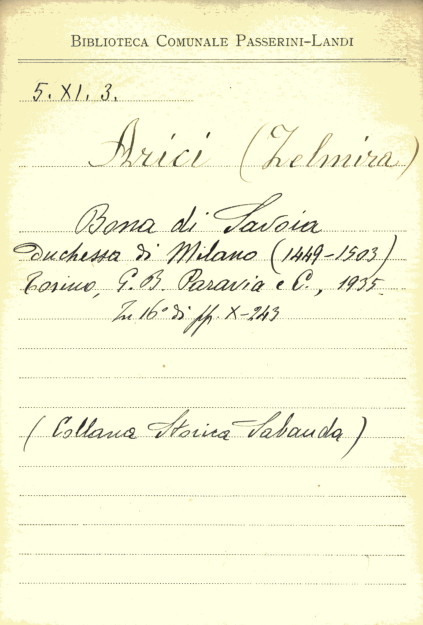 BIBLIOTECA COMUNALE PASSERINI-LANDI
5. XI. 3.
Arici (Zelmira)
Bona di Savoia
Duchessa di Milano (1449-1503)
Torino, G. B. Paravia e C., 1935.
In 16° di pp. X-243
(Collana Storica Sabauda)